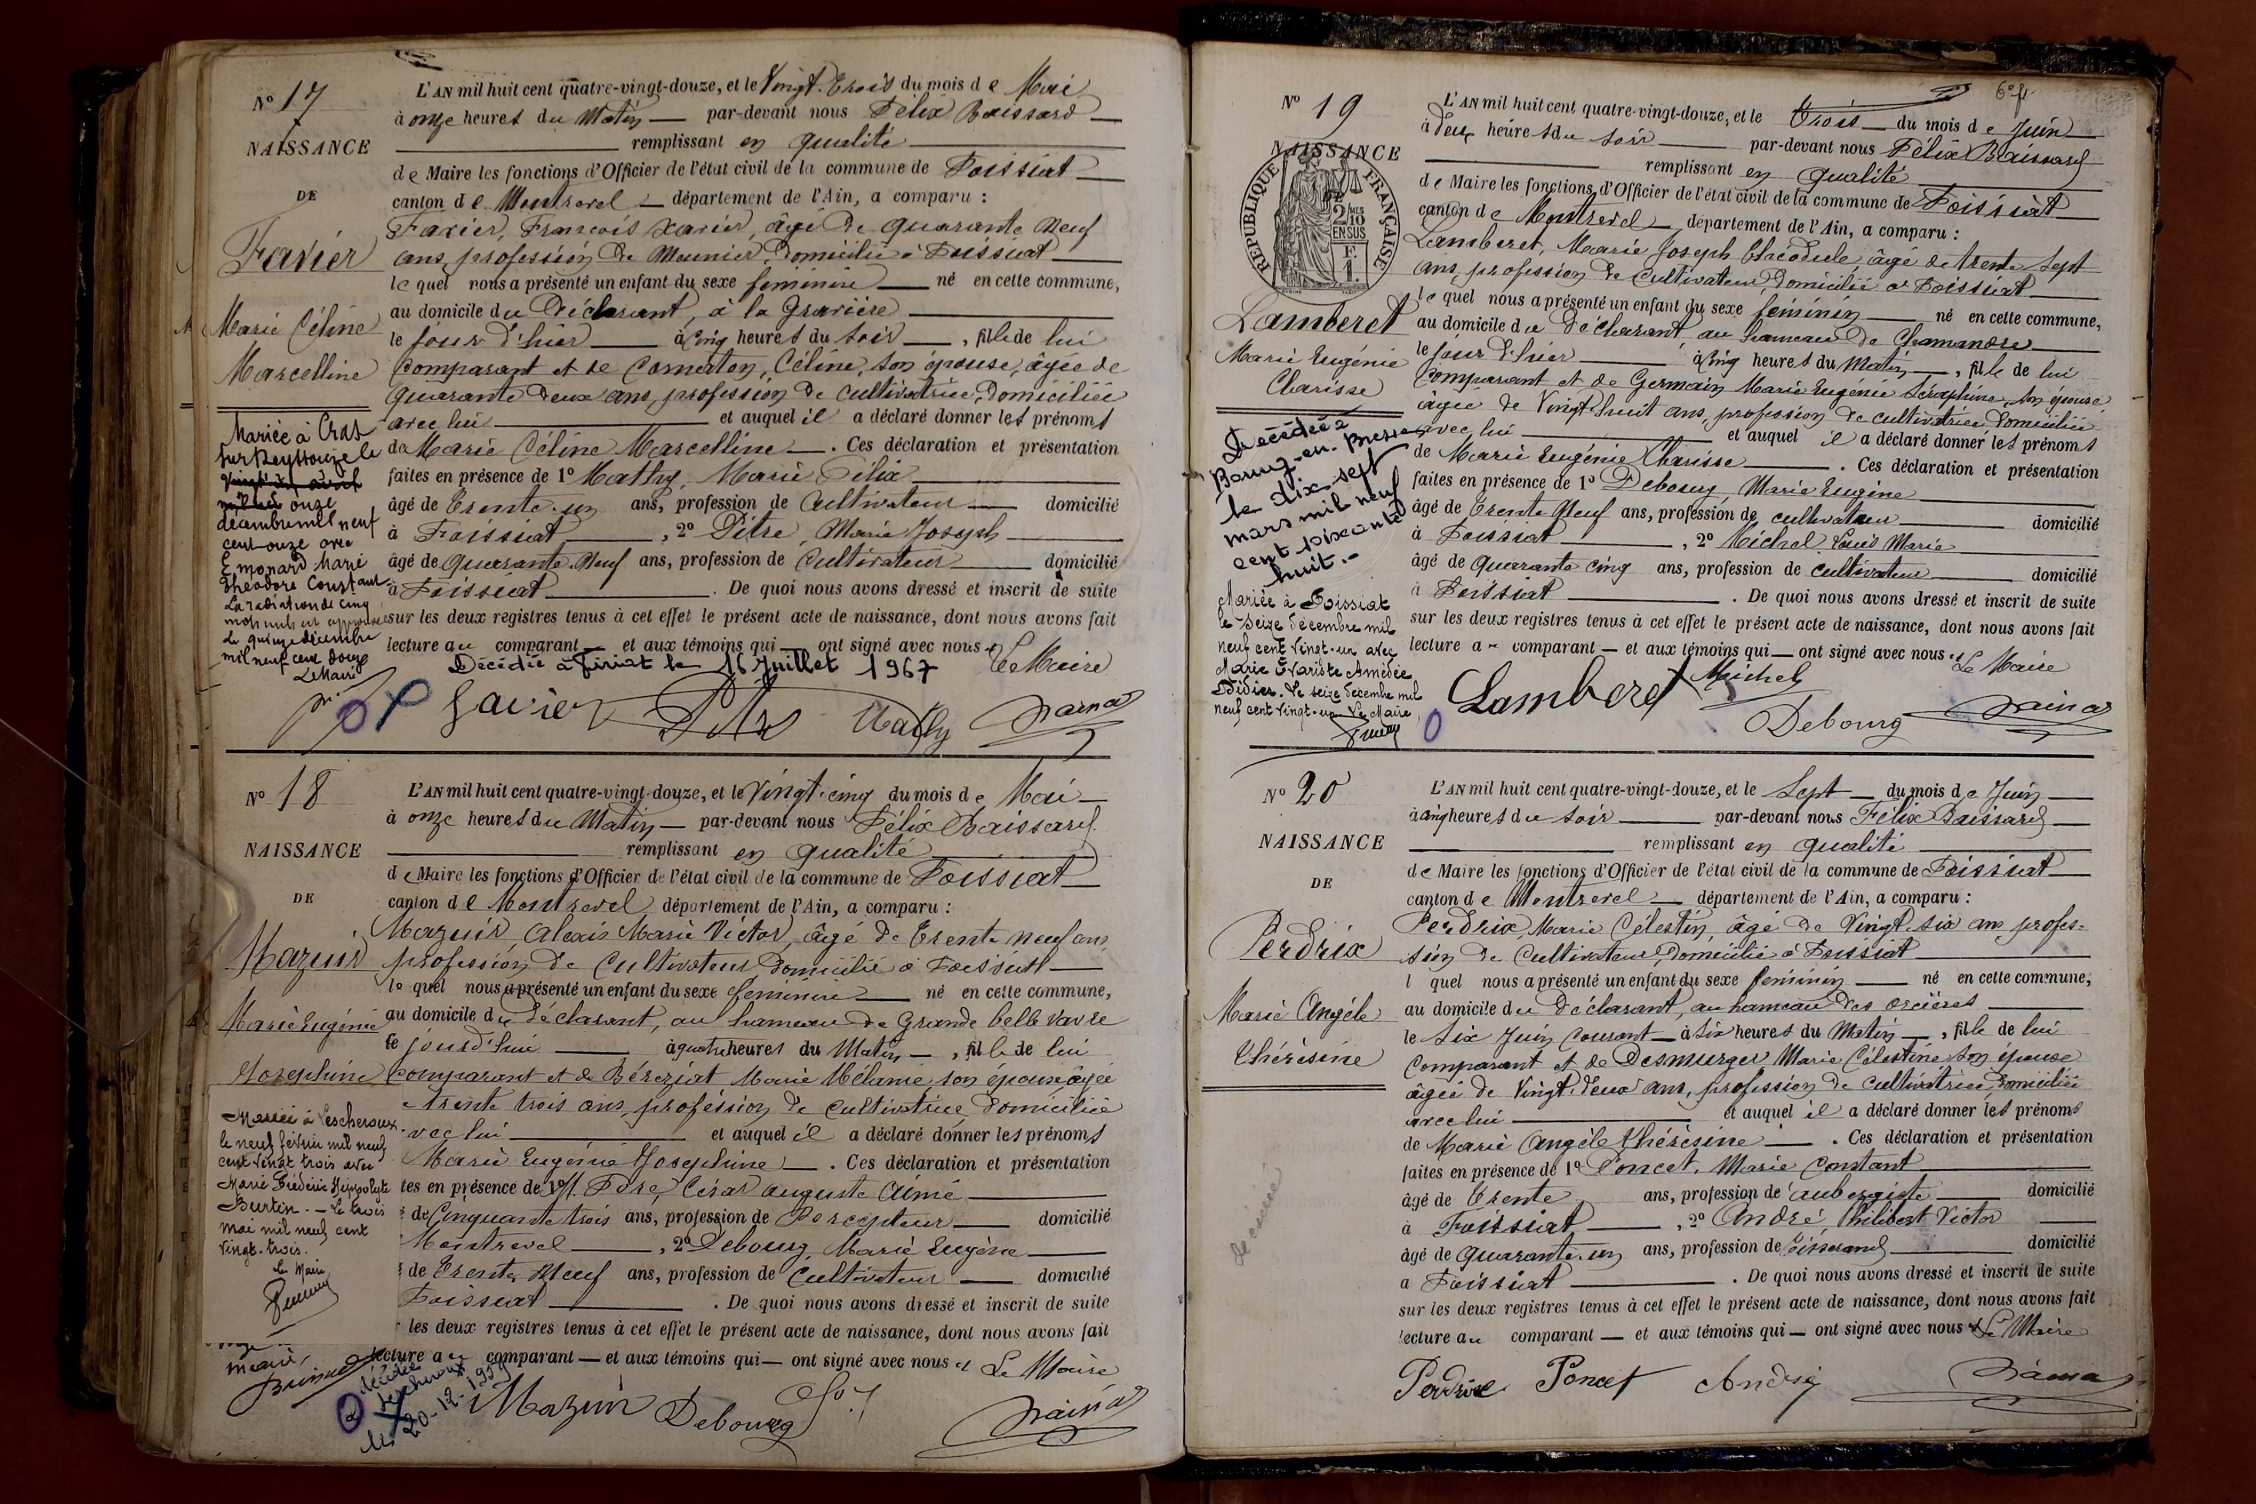 No 17
NAISSANCE
DE
Favier
Marie Céline
Marcelline
L'AN mil huit cent quatre-vingt-douze, et le Vingt-trois du mois de Mai
à onze heures du Matin par-devant nous Félix
remplissant en qualité
de Maire les fonctions d'Officier de l'état civil de la commune de Foissiat
canton de Montrevel département de l'Ain, a comparu :
Favier, François Xavier, âgé de quarante neuf
ans, profession de Meunier, domicilié à Foissiat
lequel nous a présenté un enfant du sexe féminin né en cette commune,
au domicile du Déclarant, à la Gravière
le jour d'hier à cinq heures du soir, fille de lui
Comparant et de Cornaton, Céline, son épouse, âgée de
quarante deux ans, profession de cultivatrice, domiciliée
avec lui et auquel il a déclaré donner les prénoms
de Marie Céline Marcelline. Ces déclaration et présentation
faites en présence de 1o Marie Félix
âgé de trente-un ans, profession de Cultivateur domicilié
à Foissiat, 2o Pitre, Marie Joseph
âgé de quarante-neuf ans, profession de Cultivateur domicilié
à Foissiat. De quoi nous avons dressé et inscrit de suite
sur les deux registres tenus à cet effet le présent acte de naissance, dont nous avons fait
lecture au comparant et aux témoins qui ont signé avec nous. Le Maire
Décédée à Viriat le 16 Juillet 1967
Favier
Mariée à Cras
sur Reyssouze le
onze
décembre mil neuf
cent onze avec
Emonard Marie
Théodore Constant
La radiation de cinq
mots nuls est approuvée
Le quinze décembre
mil neuf cent douze
Le Maire
No 18
NAISSANCE
DE
Mazuir
Marie Eugénie
Josephine
L'AN mil huit cent quatre-vingt-douze, et le Vingt-cinq du mois de Mai
à onze heures du Matin par-devant nous Félix
remplissant en qualité
de Maire les fonctions d'Officier de l'état civil de la commune de Foissiat
canton de Montrevel département de l'Ain, a comparu :
Mazuir Alexis Marie Victor, âgé de trente neuf ans,
profession de Cultivateur, domicilié à Foissiat
lequel nous a présenté un enfant du sexe féminin né en cette commune,
au domicile du Déclarant, au hameau de Grande belle vavre
le jourd'hui à quatre heures du Matin, fille de lui
comparant et de Béréziat Marie Mélanie, son épouse, âgée
trente trois ans, profession de cultivatrice domiciliée
avec lui et auquel il a déclaré donner les prénoms
Marie Eugénie Josephine. Ces déclaration et présentation
tes en présence de 1o César Auguste Aimé
de Cinquante trois ans, profession de Percepteur domicilié
Montrevel, 2o Debourg, Marie Eugène
de trente neuf ans, profession de Cultivateur domicilié
Foissiat. De quoi nous avons dressé et inscrit de suite
les deux registres tenus à cet effet le présent acte de naissance, dont nous avons fait
lecture au comparant et aux témoins qui ont signé avec nous et Le Maire
Mazuir Debourg
Mariée à Lescheroux
le neuf février mil neuf
cent vingt trois avec
Marie Frédéric Hippolyte
Burtin. - Le trois
mai mil neuf cent
vingt-trois.
Le Maire
décédée
Lescheroux
le 20-12-1959
No 19
NAISSANCE
DE
RÉPUBLIQUE FRANÇAISE
2/10MES
EN SUS
Lamberet
Marie Eugénie
Clarisse
L'AN mil huit cent quatre-vingt-douze, et le trois du mois de Juin
à deux heures du soir par-devant nous Félix
remplissant en qualité
de Maire les fonctions d'Officier de l'état civil de la commune de Foissiat
canton de Montrevel département de l'Ain, a comparu :
Lamberet, Marie Joseph âgé de trente sept
ans, profession de Cultivateur, domicilié à Foissiat
lequel nous a présenté un enfant du sexe féminin né en cette commune,
au domicile du Déclarant, au hameau de Chamandre
le jour d'hier à cinq heures du Matin, fille de lui
comparant et de Germain Marie Eugénie Séraphine, son épouse
âgée de Vingt-huit ans, profession de cultivatrice, domiciliée
avec lui et auquel il a déclaré donner les prénoms
de Marie Eugénie Clarisse. Ces déclaration et présentation
faites en présence de 1o Debourg, Marie Eugène
âgé de trente neuf ans, profession de cultivateur domicilié
à Foissiat, 2o Michel Louis Marie
âgé de quarante cinq ans, profession de cultivateur domicilié
à Foissiat. De quoi nous avons dressé et inscrit de suite
sur les deux registres tenus à cet effet le présent acte de naissance, dont nous avons fait
lecture au comparant et aux témoins qui ont signé avec nous. Le Maire
Lamberet Michel
Debourg
Décédée à
Bourg-en-Bresse
le dix sept
mars mil neuf
cent soixante
huit.-
Mariée à Foissiat
le seize décembre mil
neuf cent vingt-un avec
Marie Évariste Amédée
Didier. Le seize décembre mil
neuf cent vingt-un Le Maire,
No 20
NAISSANCE
DE
Perdrix
Marie Angèle
Thérésine
L'AN mil huit cent quatre-vingt-douze, et le Sept du mois de Juin
à cinq heures du soir par-devant nous Félix
remplissant en qualité
de Maire les fonctions d'Officier de l'état civil de la commune de Foissiat
canton de Montrevel département de l'Ain, a comparu :
Perdrix, Marie Célestin, âgé de Vingt-six ans profes-
sion de Cultivateur, domicilié à Foissiat
l quel nous a présenté un enfant du sexe féminin né en cette commune,
au domicile du Déclarant, au hameau des
le Six Juin courant à six heures du Matin, fille de lui
Comparant et de Desmurger Marie Célestine son épouse
âgée de Vingt-deux ans, profession de cultivatrice, domiciliée
avec lui et auquel il a déclaré donner les prénoms
de Marie Angèle Thérésine. Ces déclaration et présentation
faites en présence de 1o Poncet, Marie Constant
âgé de trente ans, profession de aubergiste domicilié
à Foissiat, 2o André, Philibert Victor
âgé de quarante-un ans, profession de Tisserand domicilié
à Foissiat. De quoi nous avons dressé et inscrit de suite
sur les deux registres tenus à cet effet le présent acte de naissance, dont nous avons fait
lecture au comparant et aux témoins qui ont signé avec nous Le Maire
Perdrix Poncet André